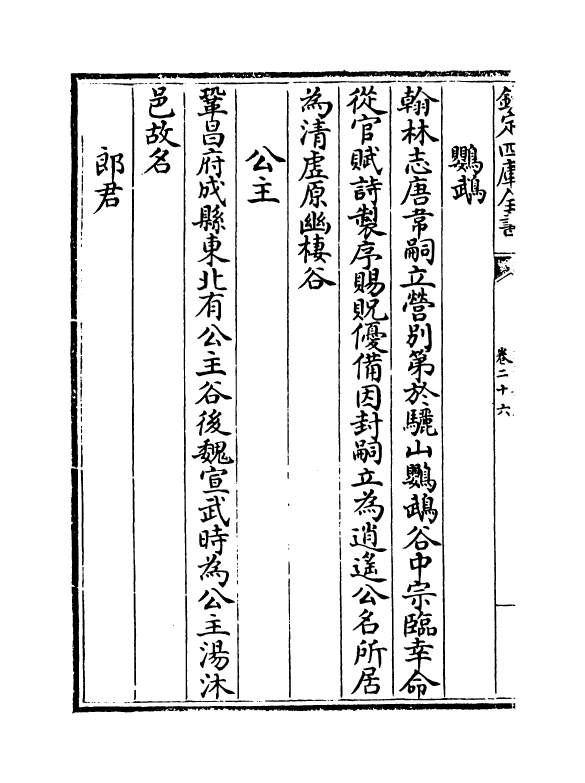 欽定四庫全書
卷二十六
鸚鵡
翰林志唐韋嗣立營别第於驪山鸚鵡谷中宗臨幸命
從官賦詩製序賜貺優備因封嗣立為逍遙公名所居
為清虚原幽棲谷
公主
鞏昌府成縣東北有公主谷後魏宣武時為公主湯沐
邑故名
郎君